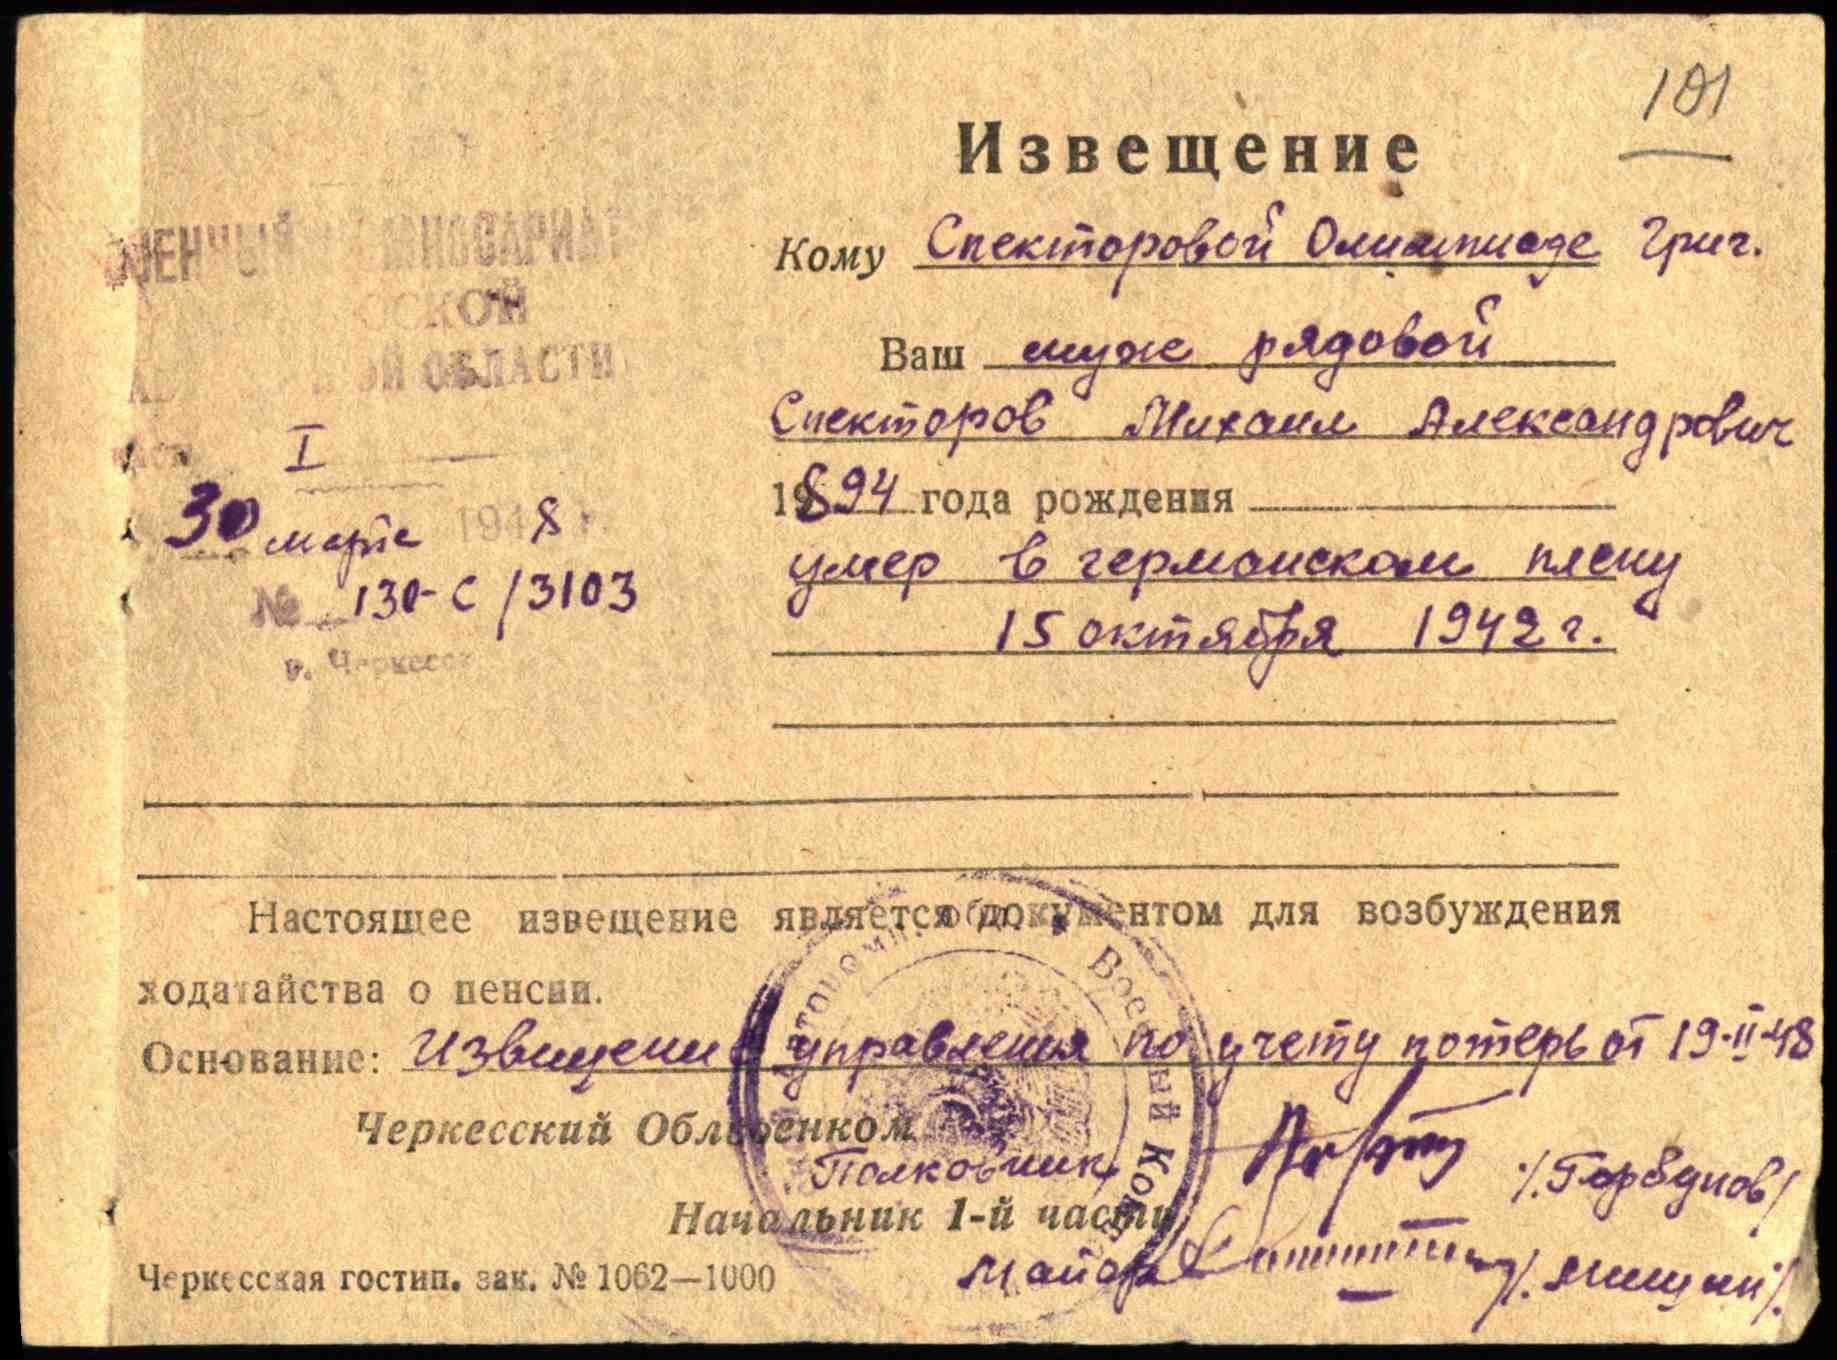 101
Извещение
Кому Спекторовой Олимпиаде Григ.
Ваш муж рядовой
Спекторов Михаил Александрович
1894 года рождения
умер в германском плену
15 октября 1942 г.
ОБЛАСТИ
I
30 марта 1948 г.
№ 130-С/3103
г. Черкесск
Настоящее извещение является документом для возбуждения
ходатайства о пенсии.
Основание: Извещение управления по учету потерь от 19-II-48
Черкесский Облвоенком
Полковник /Горбунов/
Начальник 1-й части
Майор
Черкесская гостип. зак. № 1062—1000
Военный Ком